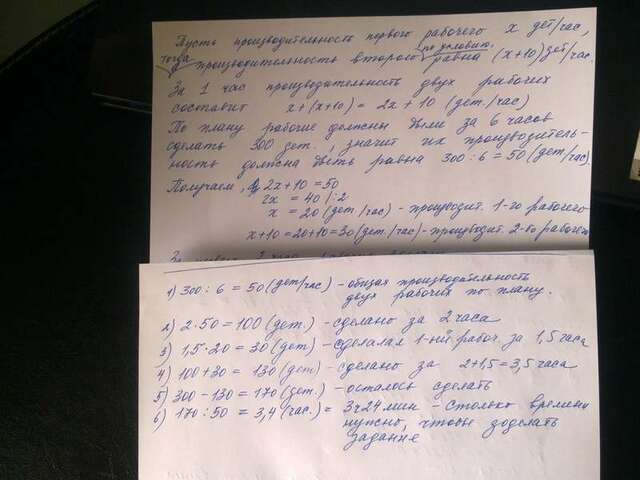 Пусть производительность первого рабочего х дет/час,
тогда производительность второго по условию равна (х+10) дет/час.
За 1 час производительность двух рабочих
составит х+(х+10) = 2х+10 (дет./час)
По плану рабочие должны были за 6 часов
сделать 300 дет., значит их производитель-
ность должна быть равна 300:6=50 (дет/час).
Получаем, 2х+10=50
2х = 40 |:2
х = 20 (дет/час) - производит. 1-го рабочего
х+10=20+10=30 (дет/час) - производит. 2-го рабочего
1) 300:6=50 (дет/час) - общая производительность
двух рабочих по плану.
2) 2·50=100 (дет.) - сделано за 2 часа
3) 1,5·20=30 (дет) - сделалал 1-ый рабоч. за 1,5 часа
4) 100+30= 130 (дет) - сделано за 2+1,5=3,5 часа
5) 300-130=170 (дет.) - осталось сделать
6) 170:50=3,4 (час.) = 3ч24мин - столько времени
нужно, чтобы доделать
задание